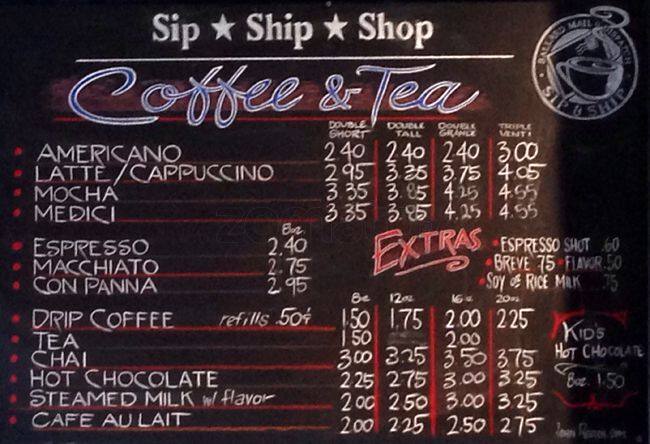 Sip ★ Ship ★ Shop
BALLARD MAIL & DISPATCH
SIP & SHIP
Coffee & Tea
DOUBLE SHORT DOUBLE TALL DOUBLE GRANDE TRIPLE VENTI
AMERICANO 2.40 2.40 2.40 3.00
LATTE/CAPPUCCINO 2.95 3.35 3.75 4.05
MOCHA 3.35 3.85 4.25 4.55
MEDICI 3.35 3.85 4.25 4.55
8oz.
ESPRESSO 2.40
MACCHIATO 2.75
CON PANNA 2.95
EXTRAS
ESPRESSO SHOT .60
BREVE .75 FLAVOR .50
SOY OR RICE MILK .75
8oz 12oz 16oz 20oz
DRIP COFFEE refills .50¢ 1.50 1.75 2.00 2.25
TEA 1.50 2.00
CHAI 3.00 3.25 3.50 3.75
HOT CHOCOLATE 2.25 2.75 3.00 3.25
STEAMED MILK w/ flavor 2.00 2.50 3.00 3.25
CAFE AU LAIT 2.00 2.25 2.50 2.75
KID'S
HOT CHOCOLATE
8oz. 1.50